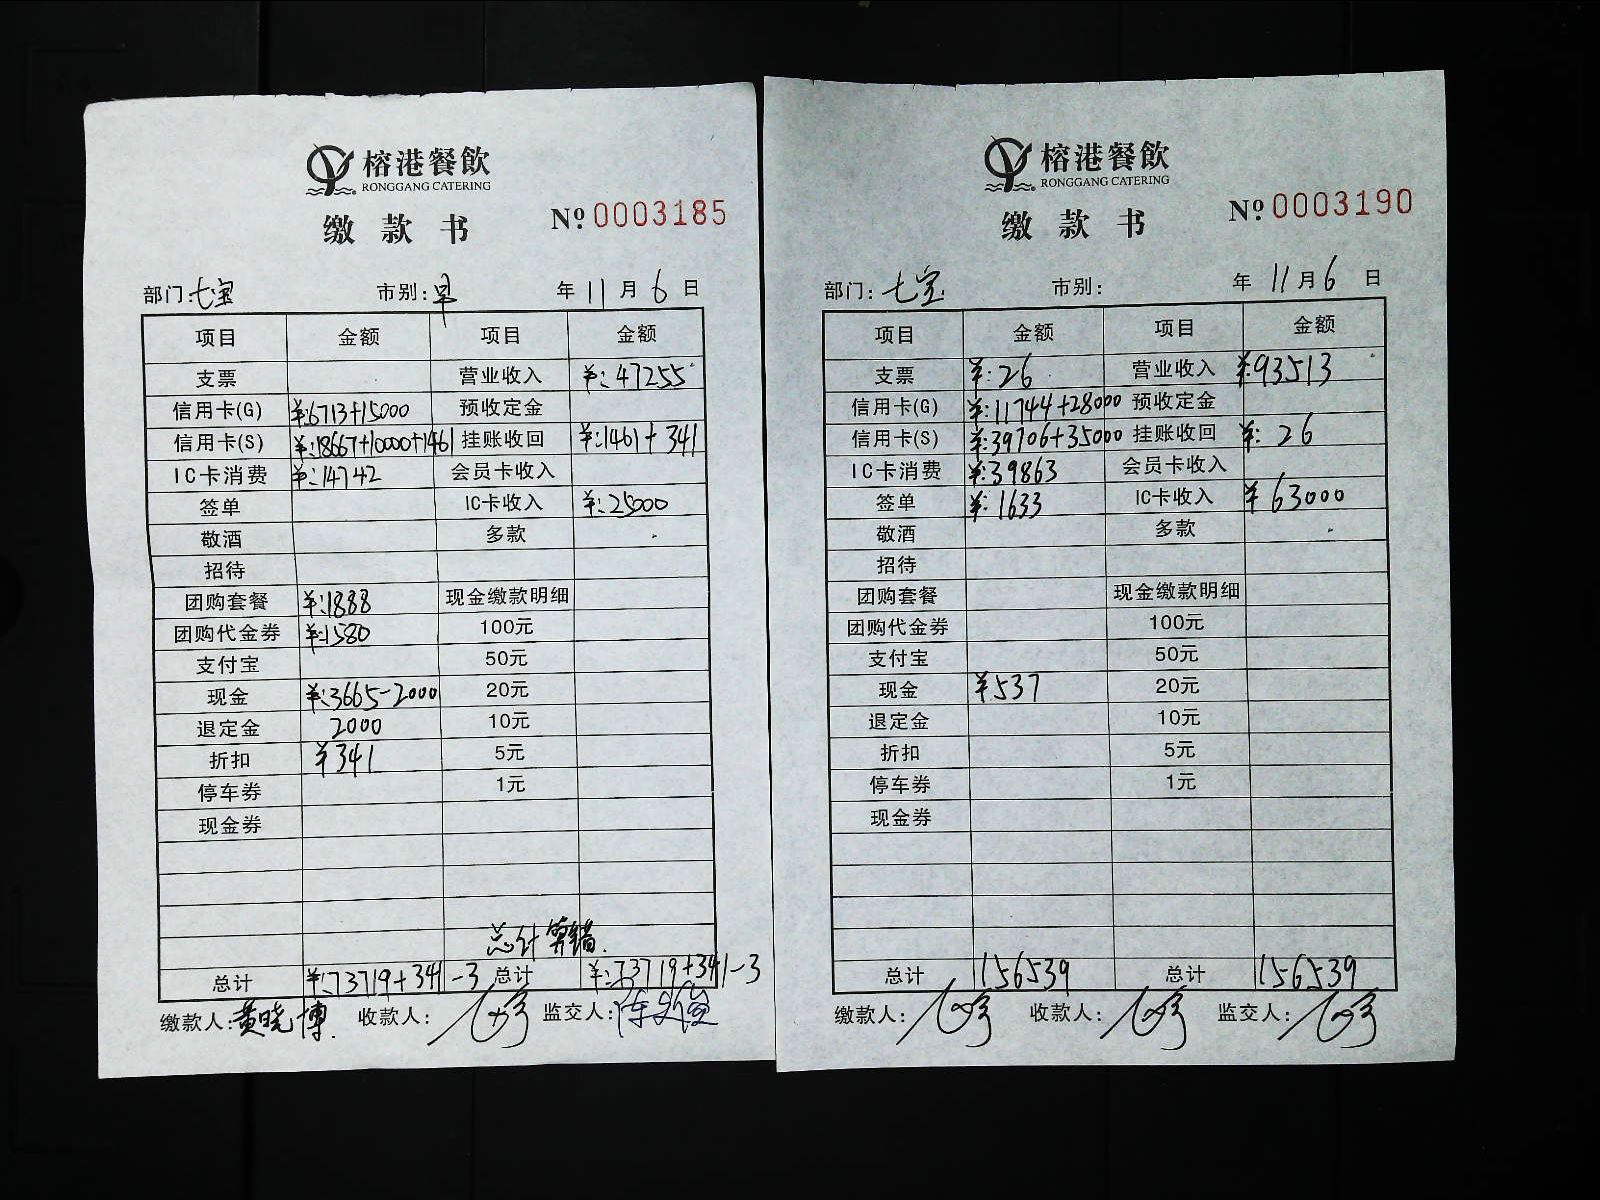 榕港餐飲
RONGGANG CATERING
缴款书
№ 0003185
部门:七宝 市别:早 年 11 月 6 日
项目 金额 项目 金额
支票 营业收入 ¥:47255
信用卡(G) ¥:6713+15000 预收定金
信用卡(S) ¥:18667+10000+1461 挂账收回 ¥:1461+341
IC卡消费 ¥:14742 会员卡收入
签单 IC卡收入 ¥:25000
敬酒 多款
招待
团购套餐 ¥:1888 现金缴款明细
团购代金券 ¥:1580 100元
支付宝 50元
现金 ¥:3665-2000 20元
退定金 2000 10元
折扣 ¥341 5元
停车券 1元
现金券
总计算错.
总计 ¥:73719+341-3 总计 ¥:73719+341-3
缴款人:黄晓博. 收款人: 监交人:
榕港餐飲
RONGGANG CATERING
缴款书
№ 0003190
部门:七宝 市别: 年 11 月 6 日
项目 金额 项目 金额
支票 ¥:26 营业收入 ¥:93513
信用卡(G) ¥:11744+28000 预收定金
信用卡(S) ¥:39706+35000 挂账收回 ¥:26
IC卡消费 ¥:39863 会员卡收入
签单 ¥:1633 IC卡收入 ¥63000
敬酒 多款
招待
团购套餐 现金缴款明细
团购代金券 100元
支付宝 50元
现金 ¥537 20元
退定金 10元
折扣 5元
停车券 1元
现金券
总计 156539 总计 156539
缴款人: 收款人: 监交人: